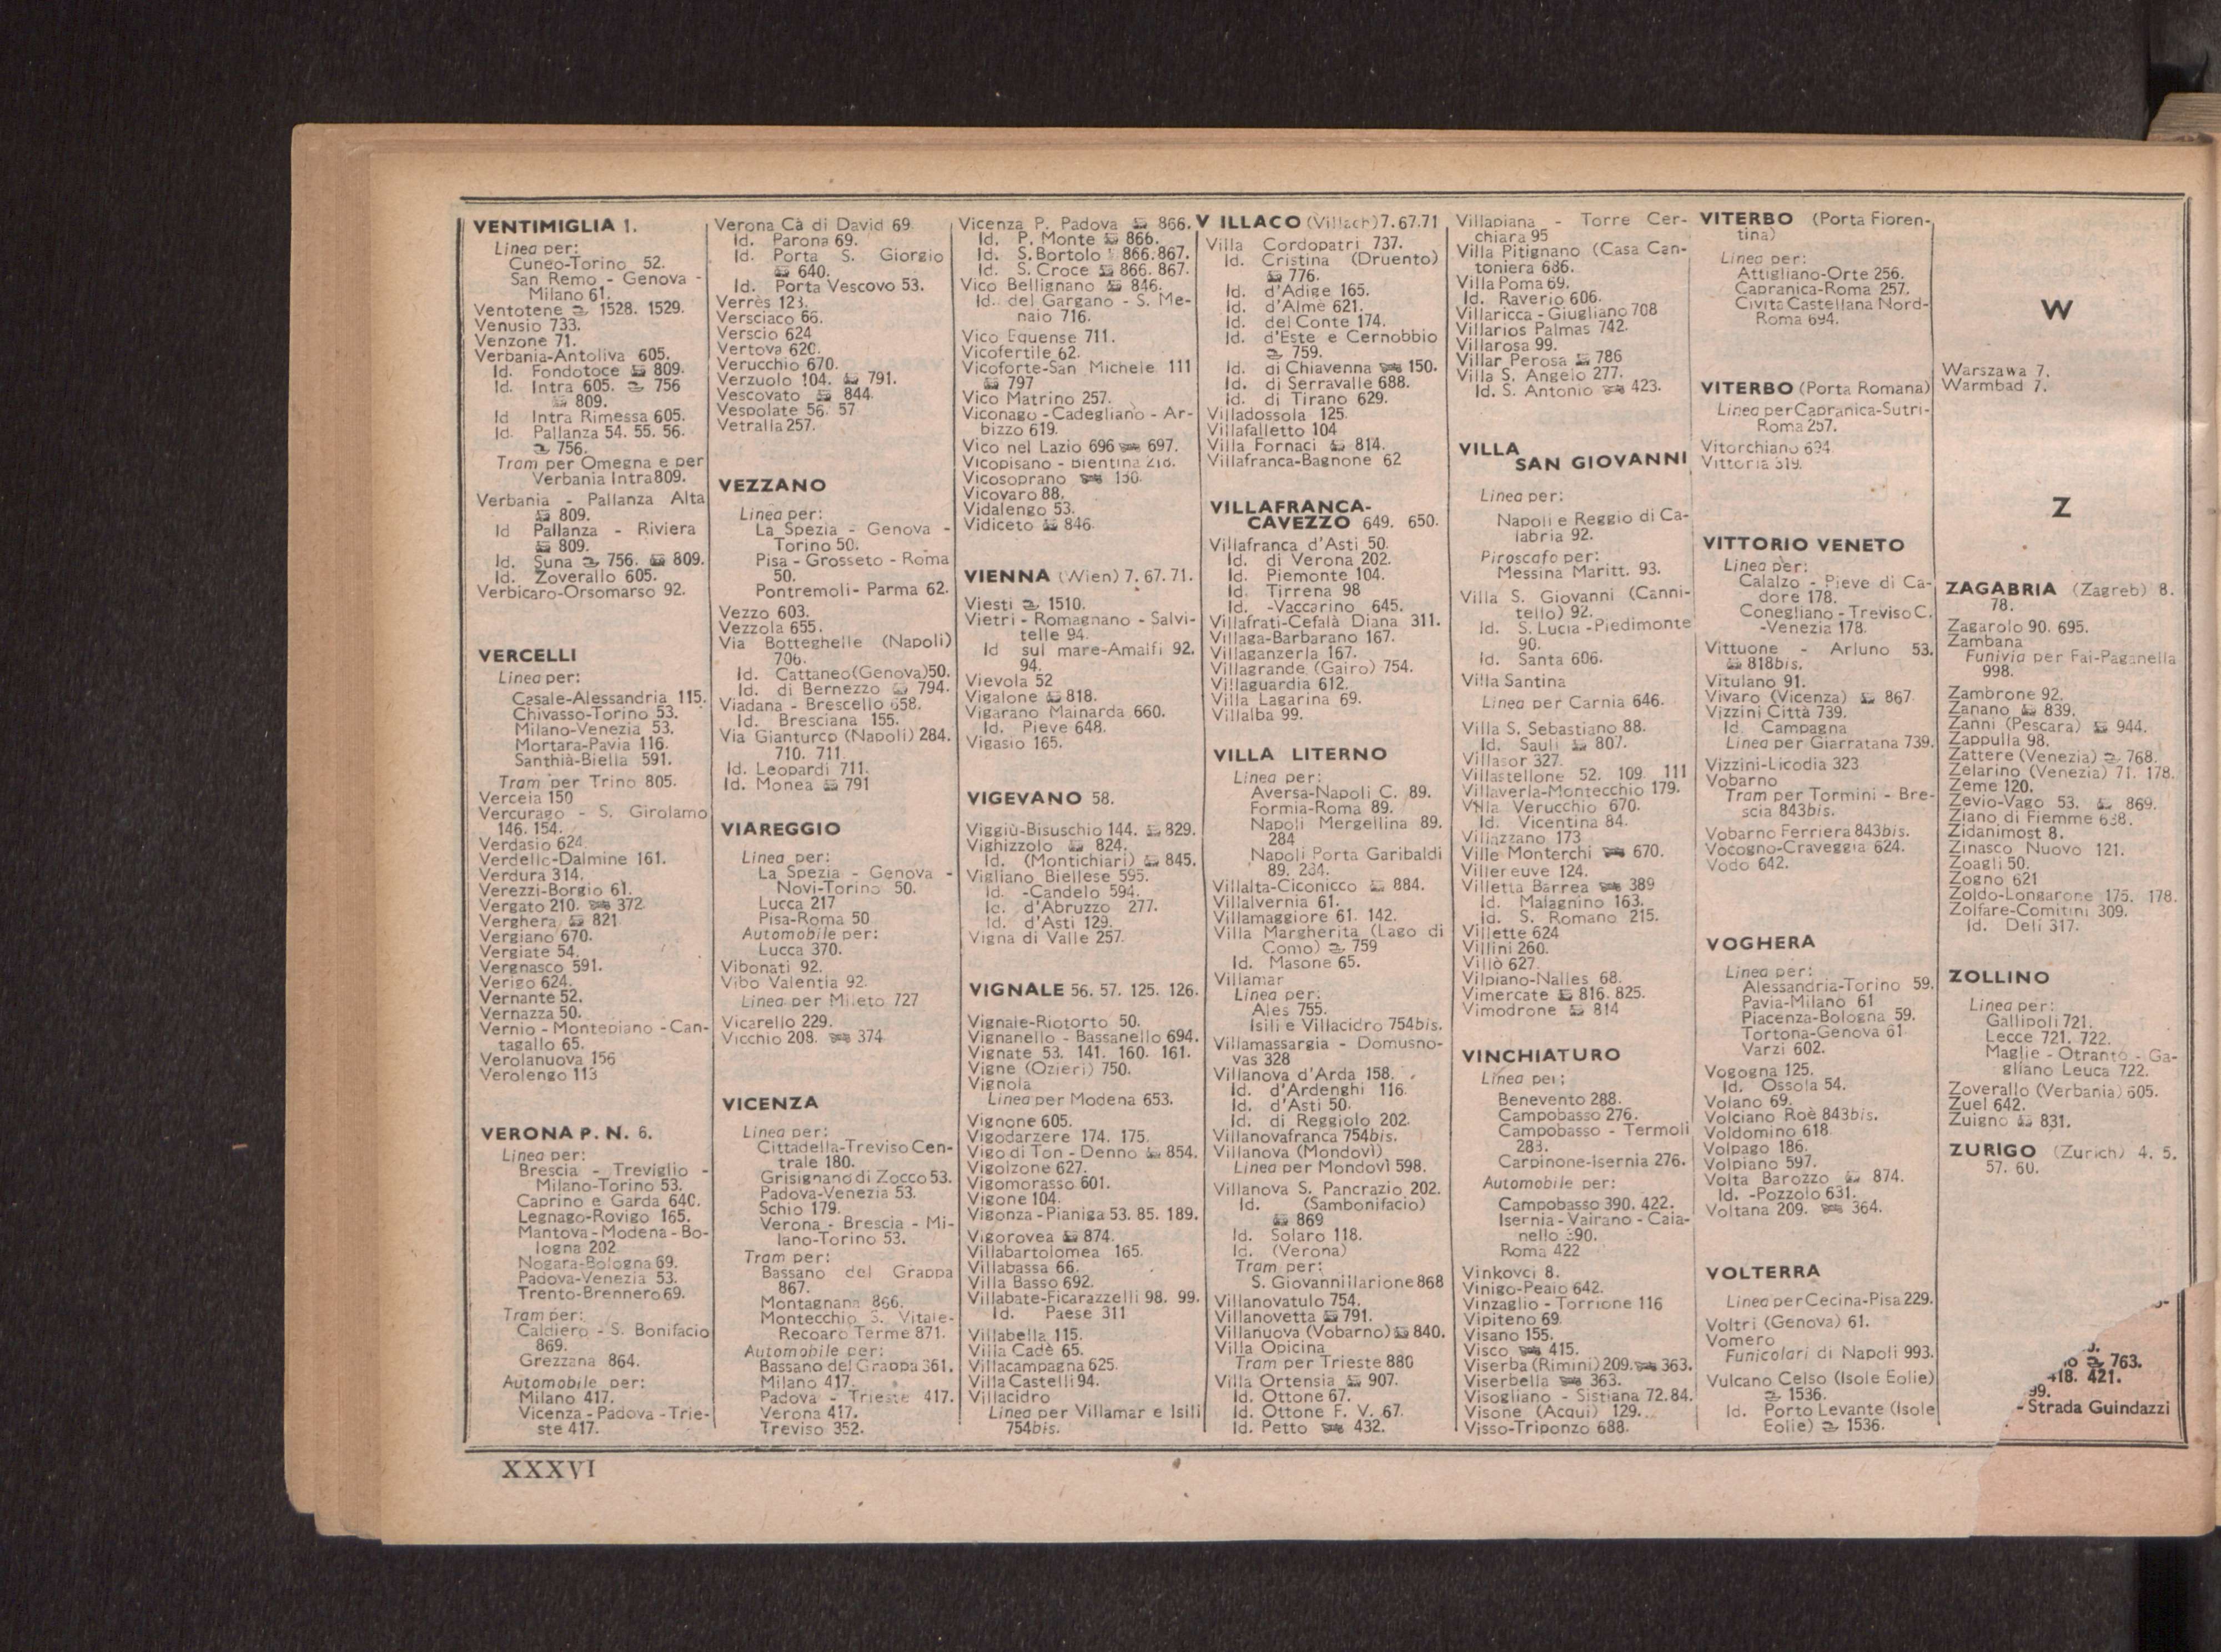 VENTIMIGLIA 1.
Linea per:
Cuneo-Torino 52.
San Remo - Genova -
Milano 61.
Ventotene 1528. 1529.
Venusio 733.
Venzone 71.
Verbania-Antoliva 605.
Id. Fondotoce 809.
Id. Intra 605. 756
809.
Id Intra Rimessa 605.
Id. Pallanza 54. 55. 56.
756.
Tram per Omegna e per
Verbania Intra 809.
Verbania - Pallanza Alta
809.
Id Pallanza - Riviera
809.
Id. Suna 756. 809.
Id. Zoverallo 605.
Verbicaro-Orsomarso 92.
VERCELLI
Linea per:
Casale-Alessandria 115.
Chivasso-Torino 53.
Milano-Venezia 53.
Mortara-Pavia 116.
Santhià-Biella 591.
Tram per Trino 805.
Verceia 150
Vercurago - S. Girolamo
146. 154.
Verdasio 624.
Verdello-Dalmine 161.
Verdura 314.
Verezzi-Borgio 61.
Vergato 210. 372
Verghera 821
Vergiano 670.
Vergiate 54.
Vergnasco 591.
Verigo 624.
Vernante 52.
Vernazza 50.
Vernio - Montepiano - Can-
tagallo 65.
Verolanuova 156
Verolengo 113
VERONA P. N. 6.
Linea per:
Brescia - Treviglio -
Milano-Torino 53.
Caprino e Garda 640.
Legnago-Rovigo 165.
Mantova - Modena - Bo-
logna 202
Nogara-Bologna 69.
Padova-Venezia 53.
Trento-Brennero 69.
Tram per:
Caldiero - S. Bonifacio
869.
Grezzana 864.
Automobile per:
Milano 417.
Vicenza - Padova - Trie-
ste 417.
Verona Cà di David 69.
Id. Parona 69.
Id. Porta S. Giorgio
640.
Id. Porta Vescovo 53.
Verrès 123.
Versciaco 66.
Verscio 624
Vertova 620.
Verucchio 670.
Verzuolo 104. 791.
Vescovato 844.
Vespolate 56. 57
Vetralla 257.
VEZZANO
Linea per:
La Spezia - Genova -
Torino 50.
Pisa - Grosseto - Roma
50.
Pontremoli - Parma 62.
Vezzo 603.
Vezzola 655.
Via Botteghelle (Napoli)
706.
Id. Cattaneo (Genova) 50.
Id. di Bernezzo 794.
Viadana - Brescello 658.
Id. Bresciana 155.
Via Gianturco (Napoli) 284.
710. 711.
Id. Leopardi 711.
Id. Monea 791
VIAREGGIO
Linea per:
La Spezia - Genova -
Novi-Torino 50.
Lucca 217
Pisa-Roma 50
Automobile per:
Lucca 370.
Vibonati 92.
Vibo Valentia 92.
Linea per Mileto 727
Vicarello 229.
Vicchio 208. 374
VICENZA
Linea per:
Cittadella-Treviso Cen-
trale 180.
Grisignano di Zocco 53.
Padova-Venezia 53.
Schio 179.
Verona - Brescia - Mi-
lano-Torino 53.
Tram per:
Bassano del Grappa
867.
Montagnana 866.
Montecchio S. Vitale-
Recoaro Terme 871.
Automobile per:
Bassano del Grappa 361.
Milano 417.
Padova - Trieste 417.
Verona 417.
Treviso 352.
Vicenza P. Padova 866.
Id. P. Monte 866.
Id. S. Bortolo 866. 867.
Id. S. Croce 866. 867.
Vico Bellignano 846.
Id. del Gargano - S. Me-
naio 716.
Vico Equense 711.
Vicofertile 62.
Vicoforte-San Michele 111
797
Vico Matrino 257.
Viconago - Cadegliano - Ar-
bizzo 619.
Vico nel Lazio 696 697.
Vicopisano - Bientina 218.
Vicosoprano 150.
Vicovaro 88.
Vidalengo 53.
Vidiceto 846.
VIENNA (Wien) 7. 67. 71.
Viesti 1510.
Vietri - Romagnano - Salvi-
telle 94.
Id sul mare-Amalfi 92.
94.
Vievola 52
Vigalone 818.
Vigarano Mainarda 660.
Id. Pieve 648.
Vigasio 165.
VIGEVANO 58.
Viggiù-Bisuschio 144. 829.
Vighizzolo 824.
Id. (Montichiari) 845.
Vigliano Biellese 595.
Id. -Candelo 594.
Id. d'Abruzzo 277.
Id. d'Asti 129.
Vigna di Valle 257.
VIGNALE 56. 57. 125. 126.
Vignale-Riotorto 50.
Vignanello - Bassanello 694.
Vignate 53. 141. 160. 161.
Vigne (Ozieri) 750.
Vignola
Linea per Modena 653.
Vignone 605.
Vigodarzere 174. 175.
Vigo di Ton - Denno 854.
Vigolzone 627.
Vigomorasso 601.
Vigone 104.
Vigonza - Pianiga 53. 85. 189.
Vigorovea 874.
Villabartolomea 165.
Villabassa 66.
Villa Basso 692.
Villabate-Ficarazzelli 98. 99.
Id. Paese 311
Villabella 115.
Villa Cadè 65.
Villacampagna 625.
Villa Castelli 94.
Villacidro
Linea per Villamar e Isili
754bis.
VILLACO (Villach) 7. 67. 71
Villa Cordopatri 737.
Id. Cristina (Druento)
776.
Id. d'Adige 165.
Id. d'Almè 621.
Id. del Conte 174.
Id. d'Este e Cernobbio
759.
Id. di Chiavenna 150.
Id. di Serravalle 688.
Id. di Tirano 629.
Villadossola 125.
Villafalletto 104
Villa Fornaci 814.
Villafranca-Bagnone 62
VILLAFRANCA-
CAVEZZO 649. 650.
Villafranca d'Asti 50.
Id. di Verona 202.
Id. Piemonte 104.
Id. Tirrena 98
Id. -Vaccarino 645.
Villafrati-Cefalà Diana 311.
Villaga-Barbarano 167.
Villaganzerla 167.
Villagrande (Gairo) 754.
Villaguardia 612.
Villa Lagarina 69.
Villalba 99.
VILLA LITERNO
Linea per:
Aversa-Napoli C. 89.
Formia-Roma 89.
Napoli Mergellina 89.
284
Napoli Porta Garibaldi
89. 284.
Villalta-Ciconicco 884.
Villalvernia 61.
Villamaggiore 61. 142.
Villa Margherita (Lago di
Como) 759
Id. Masone 65.
Villamar
Linea per:
Ales 755.
Isili e Villacidro 754bis.
Villamassargia - Domusno-
vas 328
Villanova d'Arda 158.
Id. d'Ardenghi 116.
Id. d'Asti 50.
Id. di Reggiolo 202.
Villanovafranca 754bis.
Villanova (Mondovì)
Linea per Mondovì 598.
Villanova S. Pancrazio 202.
Id. (Sambonifacio)
869
Id. Solaro 118.
Id. (Verona)
Tram per:
S. Giovanni Ilarione 868
Villanovatulo 754.
Villanovetta 791.
Villanuova (Vobarno) 840.
Villa Opicina
Tram per Trieste 880
Villa Ortensia 907.
Id. Ottone 67.
Id. Ottone F. V. 67.
Id. Petto 432.
Villapiana - Torre Cer-
chiara 95
Villa Pitignano (Casa Can-
toniera 686.
Villa Poma 69.
Id. Raverio 606.
Villaricca - Giugliano 708
Villarios Palmas 742.
Villarosa 99.
Villar Perosa 786
Villa S. Angelo 277.
Id. S. Antonio 423.
VILLA
SAN GIOVANNI
Linea per:
Napoli e Reggio di Ca-
labria 92.
Piroscafo per:
Messina Maritt. 93.
Villa S. Giovanni (Canni-
tello) 92.
Id. S. Lucia - Piedimonte
90.
Id. Santa 606.
Villa Santina
Linea per Carnia 646.
Villa S. Sebastiano 88.
Id. Sauli 807.
Villasor 327.
Villastellone 52. 109. 111
Villaverla-Montecchio 179.
Villa Verucchio 670.
Id. Vicentina 84.
Villazzano 173
Ville Monterchi 670.
Villeneuve 124.
Villetta Barrea 389
Id. Malagnino 163.
Id. S. Romano 215.
Villette 624
Villini 260.
Villò 627.
Vilpiano-Nalles 68.
Vimercate 816. 825.
Vimodrone 814
VINCHIATURO
Linea per:
Benevento 288.
Campobasso 276.
Campobasso - Termoli
283.
Carpinone-Isernia 276.
Automobile per:
Campobasso 390. 422.
Isernia - Vairano - Caia-
nello 390.
Roma 422
Vinkovci 8.
Vinigo-Peaio 642.
Vinzaglio - Torrione 116
Vipiteno 69.
Visano 155.
Visco 415.
Viserba (Rimini) 209. 363.
Viserbella 363.
Visogliano - Sistiana 72. 84.
Visone (Acqui) 129.
Visso-Triponzo 688.
VITERBO (Porta Fioren-
tina)
Linea per:
Attigliano-Orte 256.
Capranica-Roma 257.
Civita Castellana Nord-
Roma 694.
VITERBO (Porta Romana)
Linea per Capranica-Sutri-
Roma 257.
Vitorchiano 694
Vittoria 319.
VITTORIO VENETO
Linea per:
Calalzo - Pieve di Ca-
dore 178.
Conegliano - Treviso C.
-Venezia 178.
Vittuone - Arluno 53.
818bis.
Vitulano 91.
Vivaro (Vicenza) 867.
Vizzini Città 739.
Id. Campagna
Linea per Giarratana 739.
Vizzini-Licodia 323
Vobarno
Tram per Tormini - Bre-
scia 843bis.
Vobarno Ferriera 843bis.
Vocogno-Craveggia 624.
Vodo 642.
VOGHERA
Linea per:
Alessandria-Torino 59.
Pavia-Milano 61
Piacenza-Bologna 59.
Tortona-Genova 61
Varzi 602.
Vogogna 125.
Id. Ossola 54.
Volano 69.
Volciano Roè 843bis.
Voldomino 618.
Volpago 186.
Volpiano 597.
Volta Barozzo 874.
Id. -Pozzolo 631.
Voltana 209. 364.
VOLTERRA
Linea per Cecina-Pisa 229.
Voltri (Genova) 61.
Vomero
Funicolari di Napoli 993.
Vulcano Celso (Isole Eolie)
1536.
Id. Porto Levante (Isole
Eolie) 1536.
W
Warszawa 7.
Warmbad 7.
Z
ZAGABRIA (Zagreb) 8.
78.
Zagarolo 90. 695.
Zambana
Funivia per Fai-Paganella
998.
Zambrone 92.
Zanano 839.
Zanni (Pescara) 944.
Zappulla 98.
Zattere (Venezia) 768.
Zelarino (Venezia) 71. 178.
Zeme 120.
Zevio-Vago 53. 869.
Ziano di Fiemme 638.
Zidanimost 8.
Zinasco Nuovo 121.
Zoagli 50.
Zogno 621
Zoldo-Longarone 175. 178.
Zolfare-Comitini 309.
Id. Deli 317.
ZOLLINO
Linea per:
Gallipoli 721.
Lecce 721. 722.
Maglie - Otranto - Ga-
gliano Leuca 722.
Zoverallo (Verbania) 605.
Zuel 642.
Zuigno 831.
ZURIGO (Zurich) 4. 5.
57. 60.
763.
418. 421.
99.
- Strada Guindazzi
XXXVI